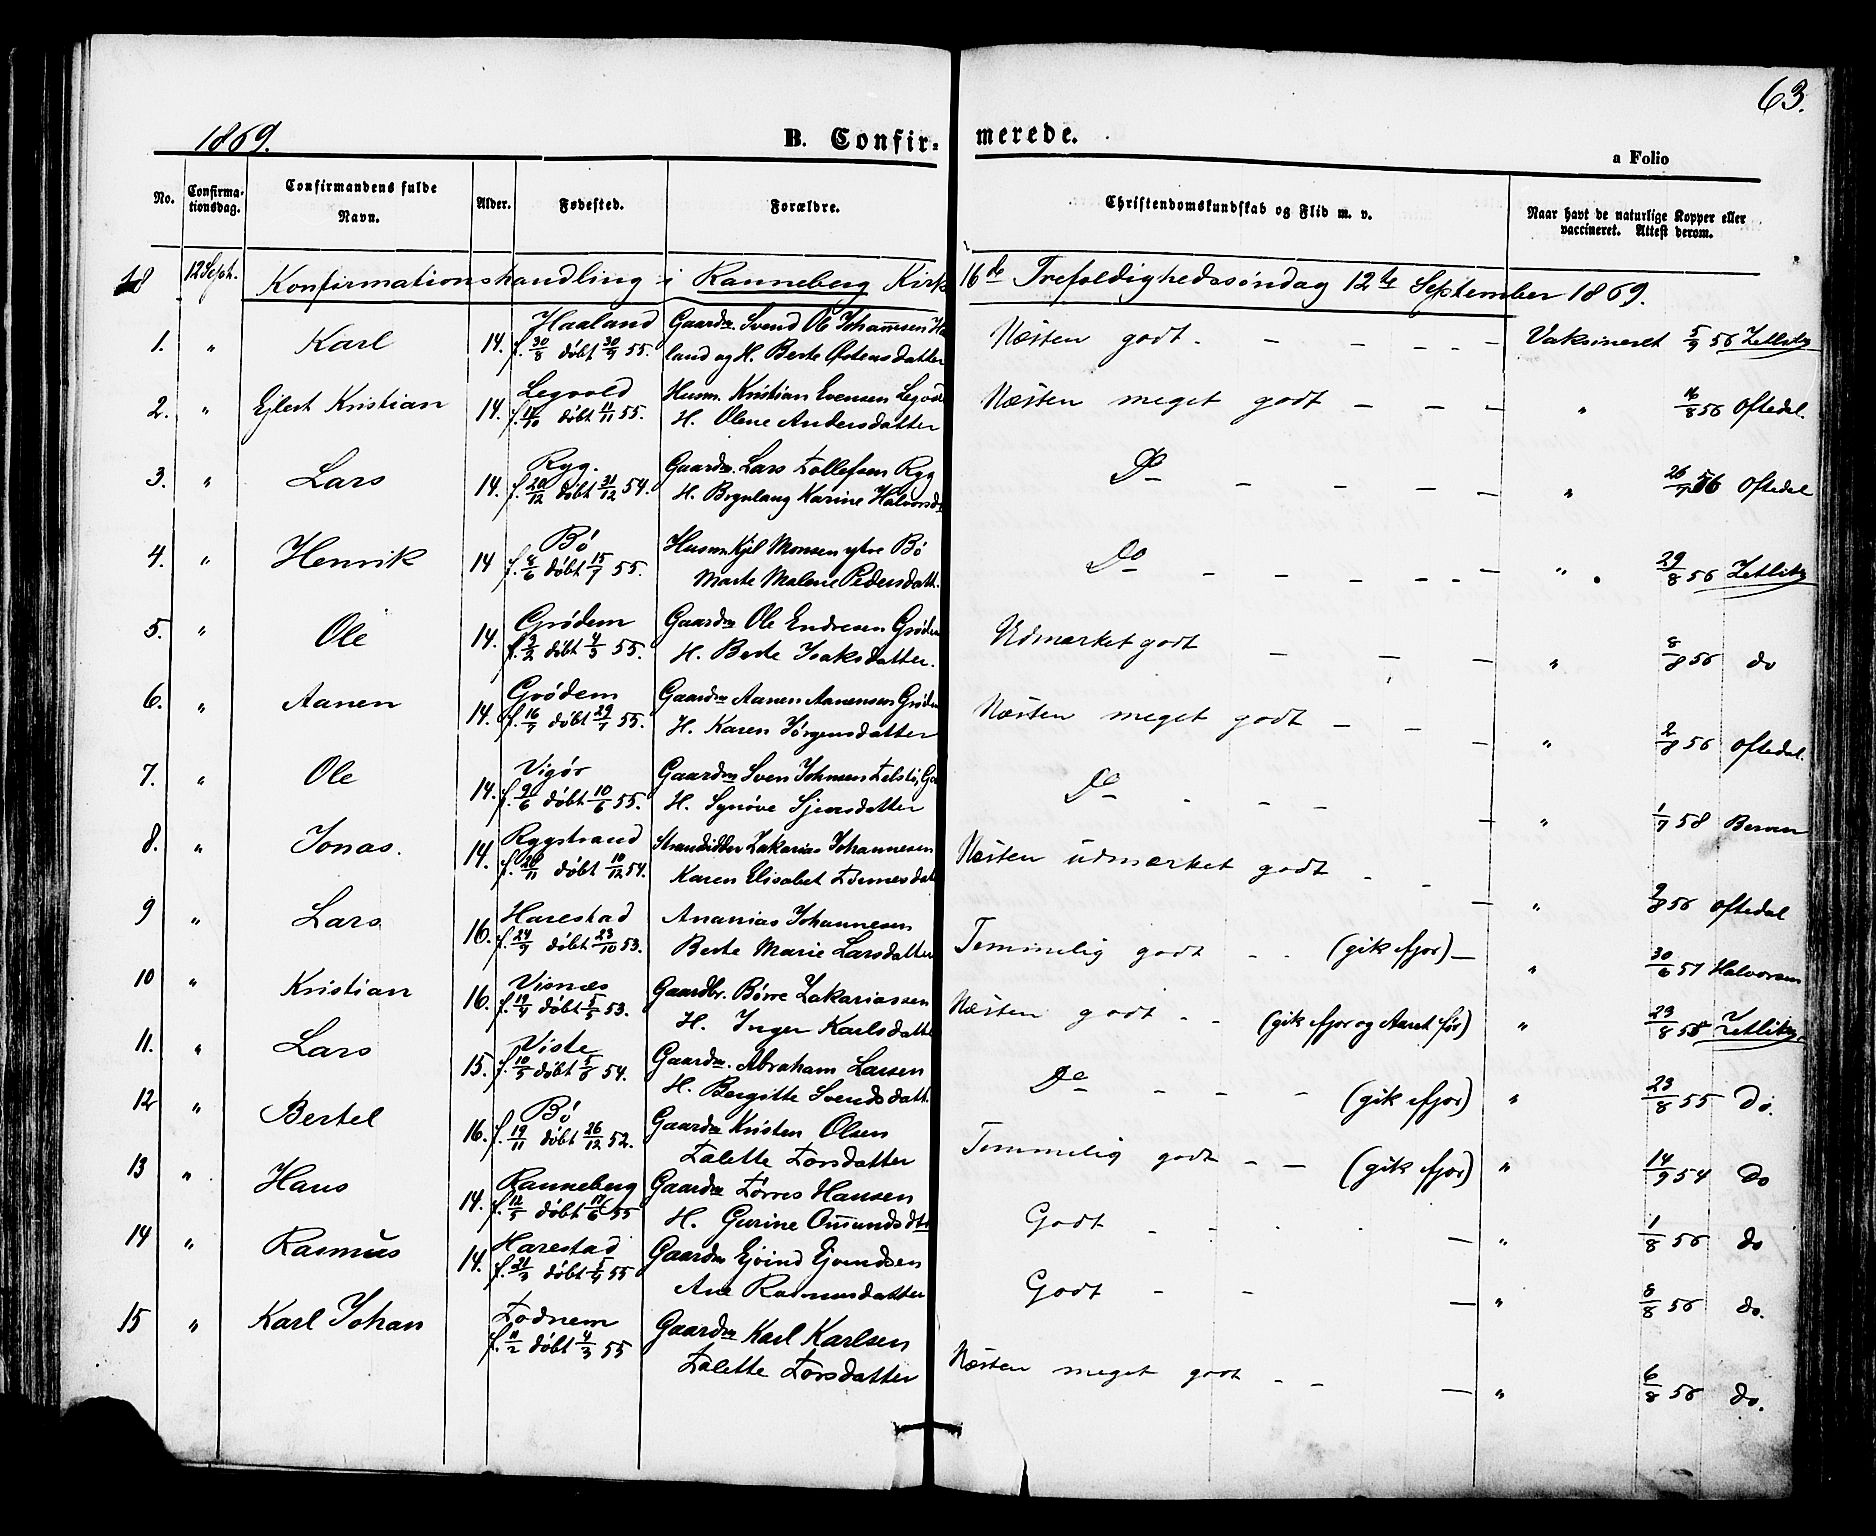 63.
1869.
B. Confirmerede.
a Folio
No. Confirmationsdag. Confirmandens fulde Navn. Alder. Fødested. Forældre. Christendomskundskab og Flid m. v. Naar havt de naturlige Kopper eller vaccineret. Attest derom.
18 12 Sept. Konfirmationshandling i Ranneberg Kirk 16de Trefoldighedssøndag 12te September 1869.
1. " Karl 14. Haaland Gaardm Svend Ol Johannesen Haa
f. 30/8 døbt 30/9 55. land og H. Berte Østensdatter Næsten godt. Vaksineret 5/9 56 Zetlitz
2. " Ejlert Kristian 14. Legvold Husm. Kristian Evensen Legvol
f. 12/10 døbt 11/11 55. H. Olene Andersdatter Næsten meget godt " 16/8 56 Oftedal.
3. " Lars 14. Ryg. Gaardm. Lars Tollefsen Ryg
f. 20/12 døbt 31/12 54. H. Brynlaug Karine Halvorsd Do " 26/7 56 Oftedal
4. " Henrik 14 Bø Husm Kjel Monsen ytre Bø
f. 4/6 døbt 15/7 55. Marte Malene Pedersdatt. Do " 29/8 56 Zetlitz
5. " Ole 14. Grødem Gaardm Ole Endresen Grødem
f. 3/2 døbt 4/3 55. H. Berte Isaksdatter. Udmærket godt " 8/8 56 do
6. " Aanen 14. Grødem Gaardm Aanen Aanensen Grødem
f. 16/7 døbt 29/7 55. H. Karen Jørgensdatter Næsten meget godt " 2/8 56 Oftedal.
7. " Ole 14. Vigør Gaardm Sven Johnsen
f. 9/6 døbt 10/6 55. H. Synøve Sjursdatter Do " 1/7 58
8. " Jonas. 14. Rygstrand Strandsidder Zakarias Johannesen
f. 20/11 døbt 10/12 54. Karen Elisabet Næsten udmærket godt " 2/8 56 Oftedal
9 " Lars 16. Harestad Ananias Johannesen
f. 24/9 døbt 23/10 53. Berte Marie Larsdatter Temmelig godt (gik ifjor) " 30/6 57 Halvorsen
10 " Kristian 16. Visnæs Gaardbr. Børre Zakariassen
f. 19/4 døbt 5/5 53. H. Inger Karlsdatte Næsten godt (gik ifjor og Aaret før) " 23/8 55 Zetlitz.
11. " Lars 15. Viste Gaardm. Abraham Larsen
f. 10/5 døbt 5/6 54. H. Bergitte Svendsdatt. Do (gik ifjor) " 23/8 55 Do.
12 " Bertel 16. Bø Gaardm Kristen Olsen
f. 19/11 døbt 26/12 52. Talette Torsdatter Temmelig godt (gik ifjor) " 14/9 54 Do
13 " Hans 14. Ranneberg Gaardm Tørres Hansen
f. 12/5 døbt 17/6 55 H. Gurine Omundsdtr Godt " 1/8 56 do
14 " Rasmus 14. Harestad Gaardm Ejvind Ejvindsen
f. 21/3 døbt 5/4 55 Ane Rasmusdatter Godt " 8/8 56 do.
15 " Karl Johan Todnem Gaardm Karl Karlsen
f. 11/2 døbt 4/3 55 Talette Torsdatter Næsten meget godt " 6/8 56 do.